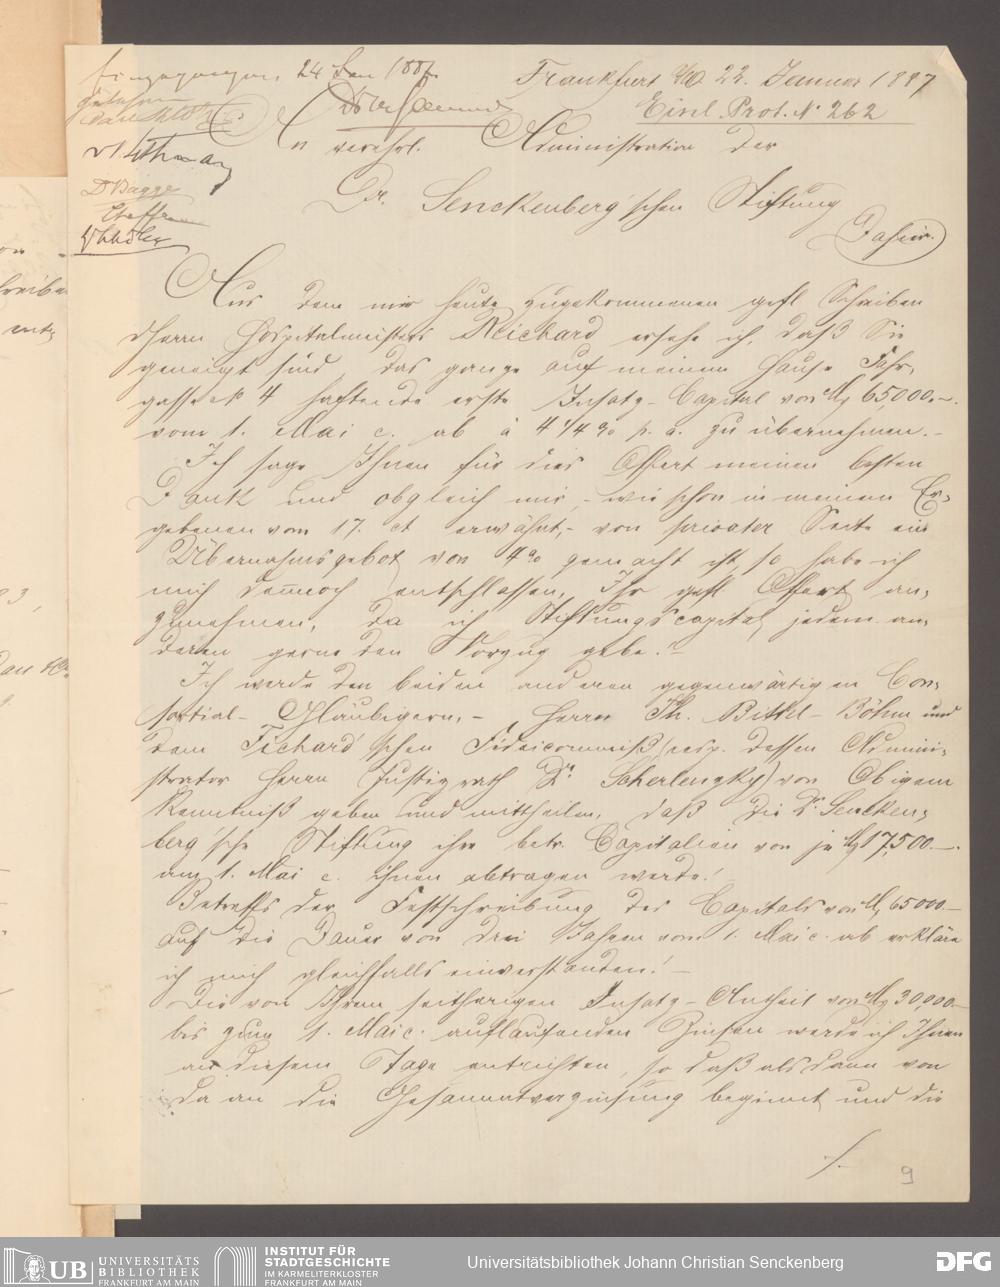 Eingegangen, 24 Jan 1887.
Frankfurt a/M 22. Januar 1887
gelesen
Einl. Prot. N° 262
An verehrl. Administration der
Dr Bagge
Dr. Senckenberg'schen Stiftung
Steffan
Dahier.
Aus dem mir heute zugekommenen gefl. Schreiben
d Herrn Hospitalmeisters Reichard ersehe ich, daß Sie
geneigt sind, das ganze auf meinem Hause Fahr-
gasse N° 4 haftende erste Insatz-Capital von M 65,000.-
vom 1. Mai c. ab à 4 1/4 % p. a. zu übernehmen.-
Ich sage Ihnen für dies Offert meinen besten
Dank und obgleich mir, - wie schon in meinem Er-
gebenen vom 17. ct erwähnt, - von privater Seite ein
Übernahmsgebot von 4% gemacht ist, so habe ich
mich dennoch entschlossen, Ihr gefl. Offert an-
zunehmen, da ich Stiftungscapital jedem an-
deren gerne den Vorzug gebe.-
Ich werde den beiden anderen gegenwärtigen Con-
sortial-Gläubigern, - Herrn Th. Bittel-Böhm und
dem Fichard'schen Fideicommiß (resp. dessen Admini-
strator Herrn Justizrath Dr. Scherlenzky) von Obigem
Kenntniß geben und mittheilen, daß die Dr. Sencken-
berg'sche Stiftung ihre betr. Capitalien von je M 17,500.-
am 1. Mai c. ihnen abtragen werde!
Betreffs der Festschreibung des Capitals von M 65000.-
auf die Dauer von drei Jahren vom 1. Mai c. ab erkläre
ich mich gleichfalls einverstanden! -
Die von Ihrem seitherigen Insatz-Antheil von M 30,000.-
bis zum 1. Mai c. auflaufenden Zinsen werde ich Ihnen
an diesem Tage entrichten, so daß alsdann von
da an die Gesammtverzinsung beginnt und die
./.
9
UB UNIVERSITÄTS
BIBLIOTHEK
FRANKFURT AM MAIN
INSTITUT FÜR
STADTGESCHICHTE
IM KARMELITERKLOSTER
FRANKFURT AM MAIN
Universitätsbibliothek Johann Christian Senckenberg
DFG